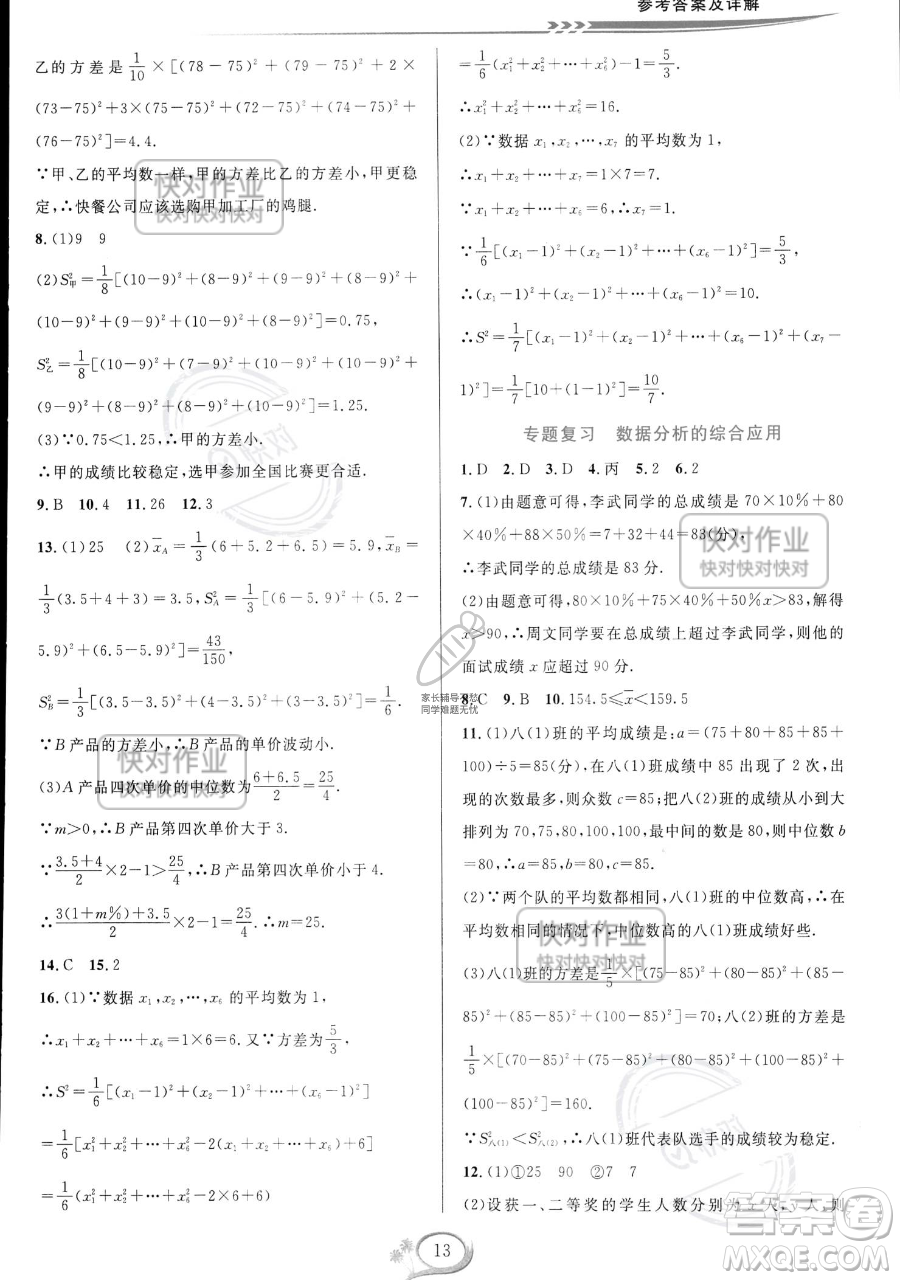 参考答案及详解
乙的方差是 1/10 ×[(78-75)²+(79-75)²+2×
(73-75)²+3×(75-75)²+(72-75)²+(74-75)²+
(76-75)²]=4.4.
∵甲、乙的平均数一样,甲的方差比乙的方差小,甲更稳
定,∴快餐公司应该选购甲加工厂的鸡腿.
8.(1)9 9
(2)S²甲=1/8[(10-9)²+(8-9)²+(9-9)²+(8-9)²+
(10-9)²+(9-9)²+(10-9)²+(8-9)²]=0.75,
S²乙=1/8[(10-9)²+(7-9)²+(9-9)²+(10-9)²+
(8-9)²+(10-9)²+(8-9)²+(10-9)²]=1.25.
(3)∵0.75<1.25,∴甲的方差小,
∴甲的成绩比较稳定,选甲参加全国比赛更合适.
9.B 10.4 11.26 12.3
13.(1)25 (2)x̄A=1/3(6+5.2+6.5)=5.9,x̄B=
1/3(3.5+4+3)=3.5,S²A=1/3[(6-5.9)²+(5.2-
5.9)²+(6.5-5.9)²]=43/150,
S²B=1/3[(3.5-3.5)²+(4-3.5)²+(3-3.5)²]=1/6.
∵B产品的方差小,∴B产品的单价波动小.
(3)A产品四次单价的中位数为(6+6.5)/2=25/4.
∵m>0,∴B产品第四次单价大于3.
∵(3.5+4)/2×2-1>25/4,∴B产品第四次单价小于4.
∴(3(1+m%)+3.5)/2×2-1=25/4.∴m=25.
14.C 15.2
16.(1)∵数据x₁,x₂,…,x₆的平均数为1,
∴x₁+x₂+…+x₆=1×6=6.又∵方差为5/3,
∴S²=1/6[(x₁-1)²+(x₂-1)²+…+(x₆-1)²]
=1/6[x₁²+x₂²+…+x₆²-2(x₁+x₂+…+x₆)+6]
=1/6(x₁²+x₂²+…+x₆²-2×6+6)
=1/6(x₁²+x₂²+…+x₆²)-1=5/3.
∴x₁²+x₂²+…+x₆²=16.
(2)∵数据x₁,x₂,…,x₇的平均数为1,
∴x₁+x₂+…+x₇=1×7=7.
∵x₁+x₂+…+x₆=6,∴x₇=1.
∵1/6[(x₁-1)²+(x₂-1)²+…+(x₆-1)²]=5/3,
∴(x₁-1)²+(x₂-1)²+…+(x₆-1)²=10.
∴S²=1/7[(x₁-1)²+(x₂-1)²+…+(x₇-
1)²]=1/7[10+(1-1)²]=10/7.
专题复习 数据分析的综合应用
1.D 2.D 3.D 4.丙 5.2 6.2
7.(1)由题意可得,李武同学的总成绩是70×10%+80
×40%+88×50%=7+32+44=83(分),
∴李武同学的总成绩是83分.
(2)由题意可得,80×10%+75×40%+50%x>83,解得
x>90,∴周文同学要在总成绩上超过李武同学,则他的
面试成绩x应超过90分.
8.C 9.B 10.154.5≤x̄<159.5
11.(1)八(1)班的平均成绩是:a=(75+80+85+85+
100)÷5=85(分),在八(1)班成绩中85出现了2次,出
现的次数最多,则众数c=85;把八(2)班的成绩从小到大
排列为70,75,80,100,100,最中间的数是80,则中位数b
=80,∴a=85,b=80,c=85.
(2)∵两个队的平均数都相同,八(1)班的中位数高,∴在
平均数相同的情况下,中位数高的八(1)班成绩好些.
(3)八(1)班的方差是1/5×[(75-85)²+(80-85)²+(85-
85)²+(85-85)²+(100-85)²]=70;八(2)班的方差是
1/5×[(70-85)²+(100-85)²+(100-85)²+(75-85)²+
(80-85)²]=160.
∵S²八(1)<S²八(2),∴八(1)班代表队选手的成绩较为稳定.
12.(1)①25 90 ②7 7
(2)设获一、二等奖的学生人数分别为x人,y人,则
13
快对作业
快对快对快对
快对作业
快对快对快对
快对作业
快对快对快对
快对作业
快对快对快对
家长辅导不愁
同学难题无忧
答案圈
MXQE.COM